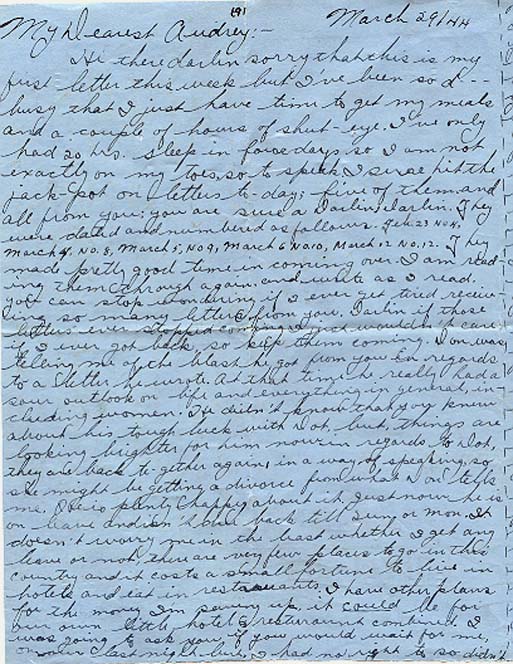 (9)
March 29/44
My Dearest Audrey:-
Hi there darlin sorry that this is my
first letter this week but I've been so d--
busy that I just have time to get my meals
and a couple of hours of shut-eye. I've only
had 20 hrs. sleep in four days so I am not
exactly on my toes, so to speak. I sure hit the
jack-pot on letters to-day; five of them and
all from you; you are sure a Darlin, Darlin. They
were dated and numbered as follows. Feb. 23 No 4,
March 4, No. 8, March 5, No 9, March 6 No. 10, March 12 No. 12. They
made pretty good time in coming over. I am read-
ing them through again and write as I read.
You can stop wondering if I ever get tired receiv-
ing so many letters from you. Darlin if those
letters ever stopped coming I just wouldn't care
if I ever got back, so keep them coming. Don was
telling me of the blast he got from you in regards
to a letter he wrote. At that time he really had a
sour outlook on life and everything in general, in-
cluding women. He didn't know that you knew
about his tough luck with Dot, but, things are
looking brighter for him now in regards to Dot,
they are back to gether again, in a way of speaking, so
she might be getting a divorce from what Don tells
me. He is plenty happy about it. Just now he is
on leave and isn't due back till Sun or Mon. It
doesn't worry me in the least whether I get any
leave or not, there are very few places to go in this
country and it costs a small fortune to live in
hotels and eat in restaurants. I have other plans
for the money I'm saving up, it could be for
our own little hotel & restaurant combined. I
was going to ask you, if you would wait for me,
on our last night but, I had no right to so didn't